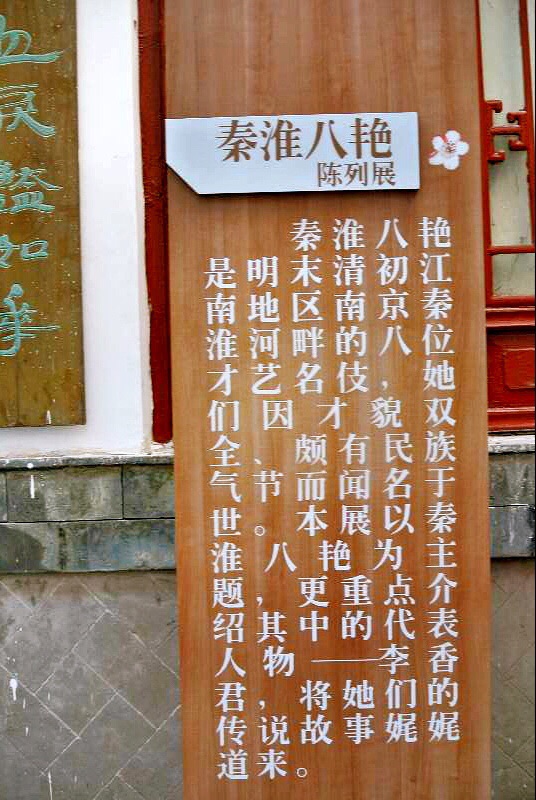 秦淮八艳
陈列展
秦淮八艳
是明末清初江
南地区南京秦
淮河畔的八位
才艺名伎，她
们因才貌双
全、颇有民族
气节而闻名于
世。本展以秦
淮八艳为主
题，更重点介
绍其中的代表
人物——李香
君，将她们的
传说故事娓娓
道来。